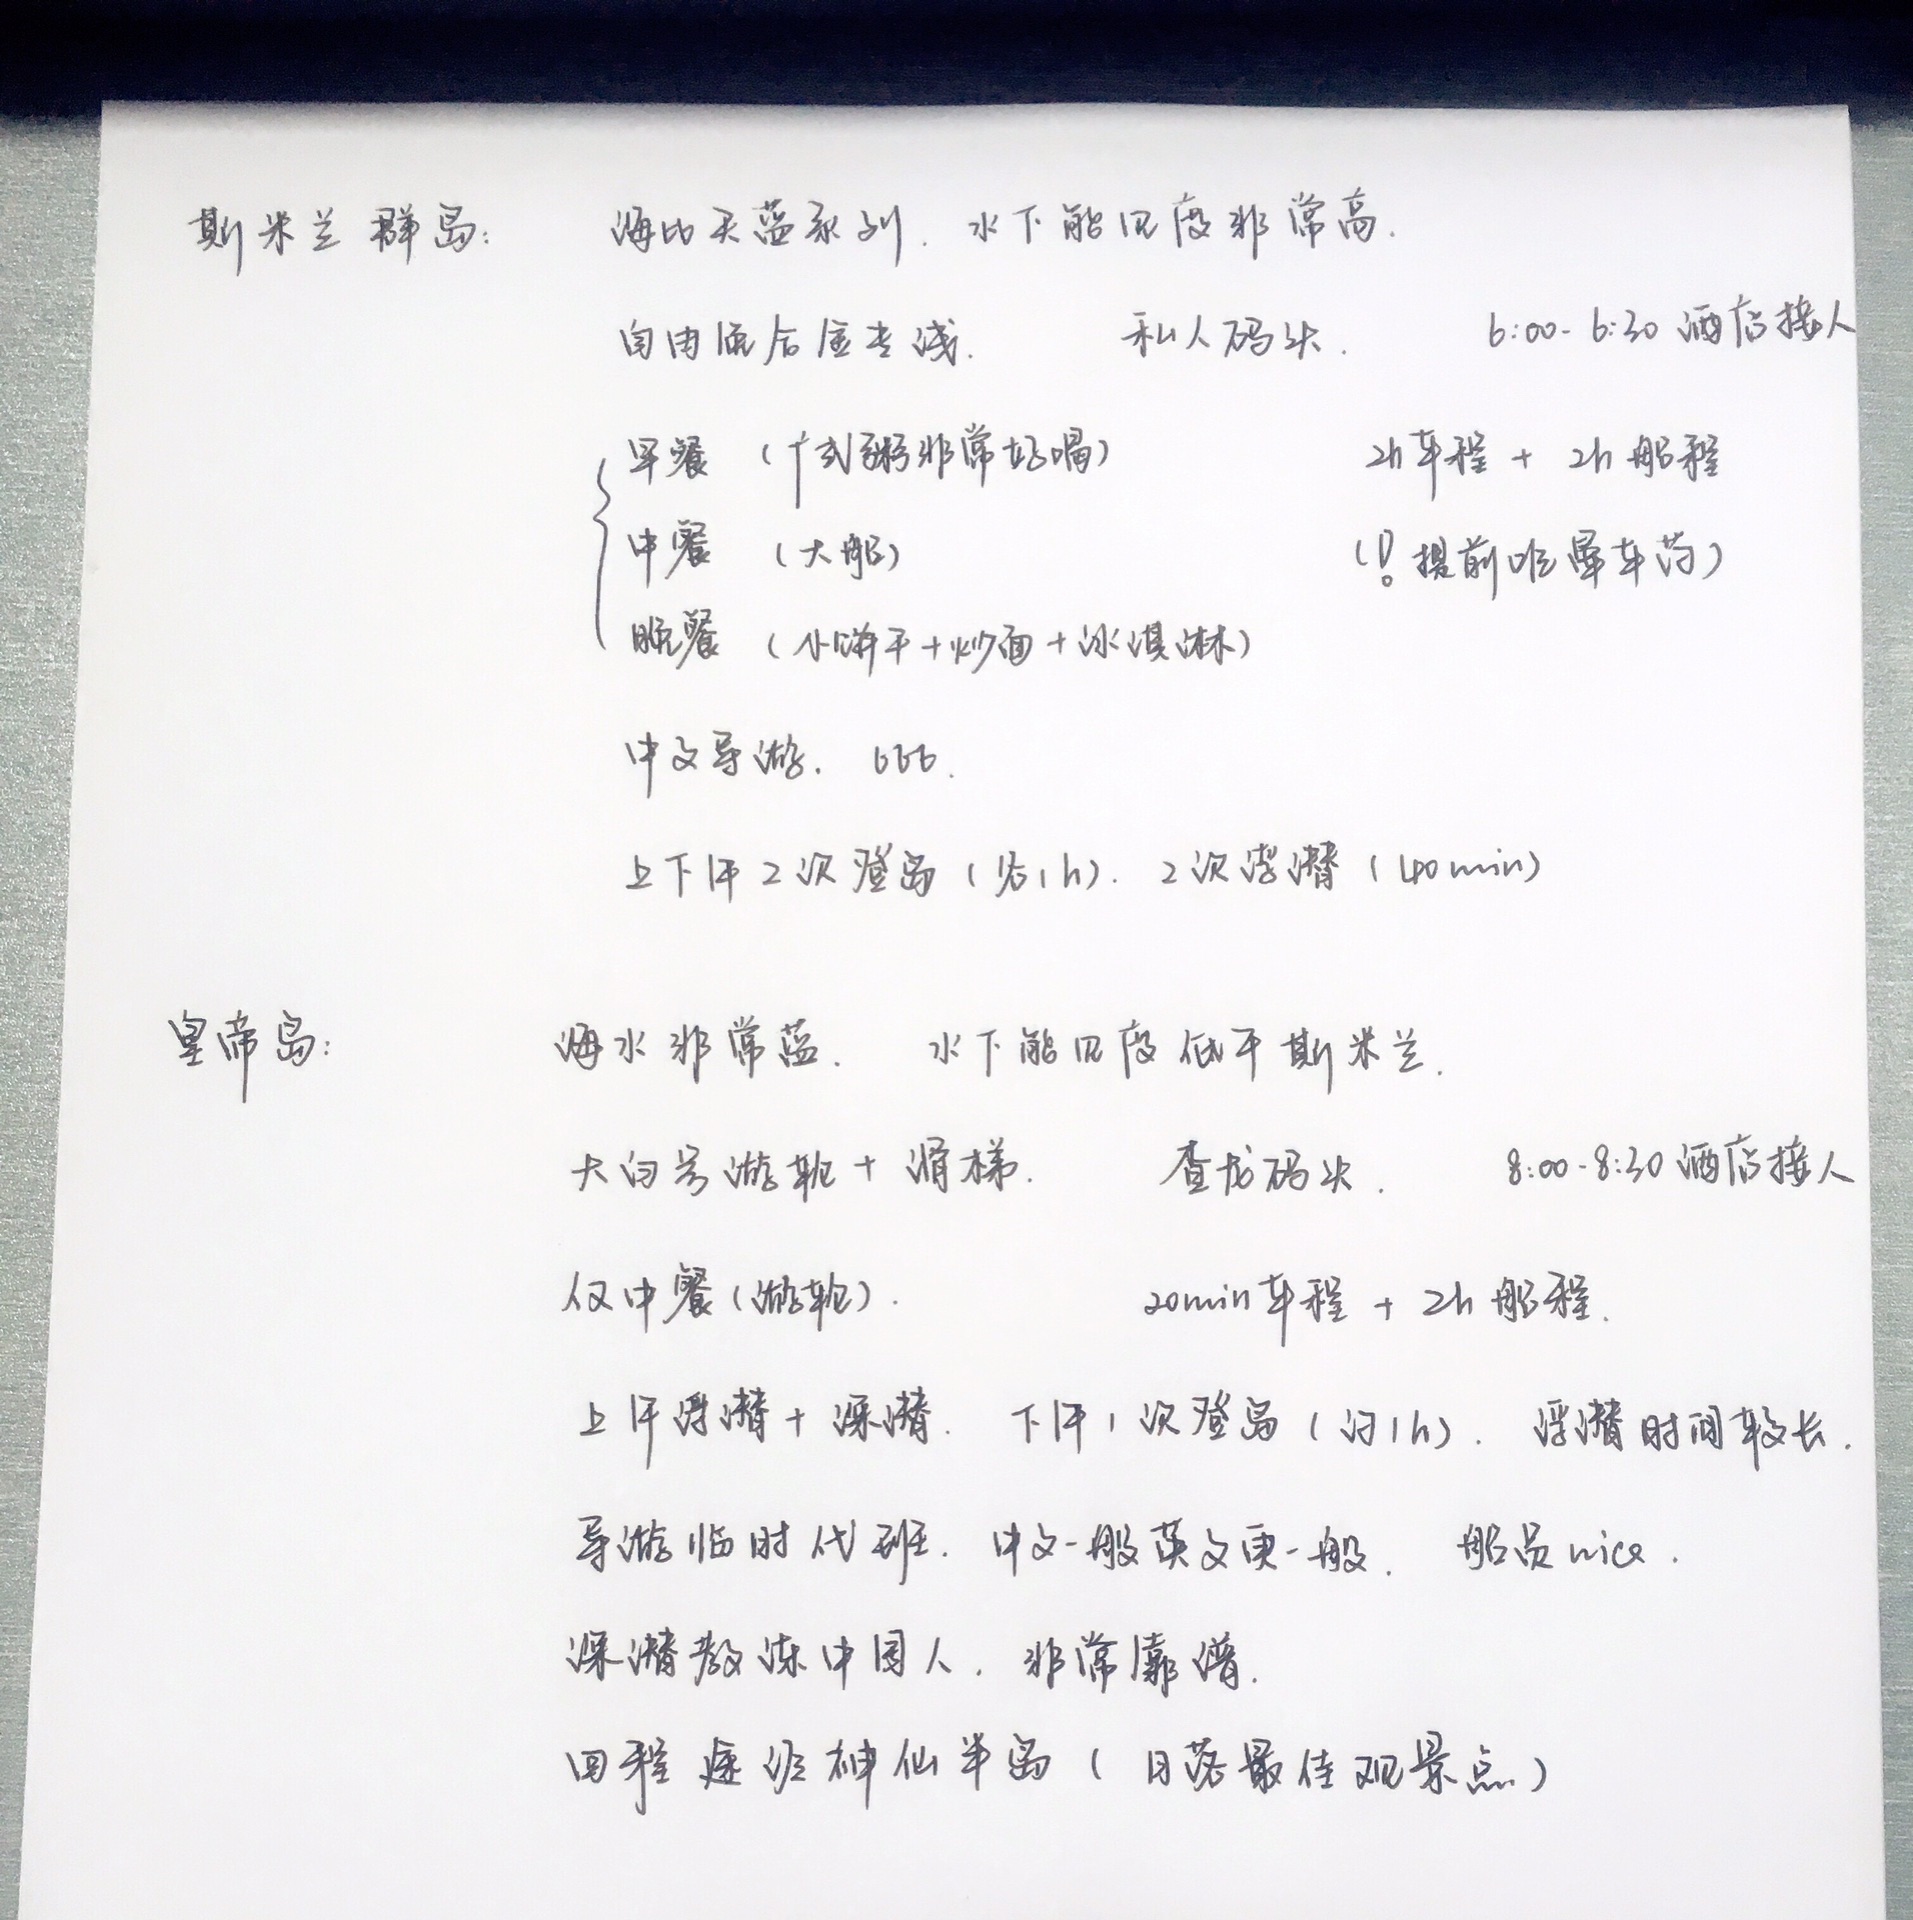 斯米兰群岛: 海比天蓝系列. 水下能见度非常高.
自由 专线. 私人码头. 6:00-6:30 酒店接人
早餐 (广式粥非常好喝) 2h车程 + 2h船程
中餐 (大船) (! 提前吃晕车药)
晚餐 (小饼干+炒面+冰淇淋)
中文导游. 666.
上下午2次登岛 (各1h). 2次浮潜 (40min)
皇帝岛: 海水非常蓝. 水下能见度低于斯米兰.
大白号游轮 + 滑梯. 查龙码头. 8:00-8:30 酒店接人
仅中餐 (游轮). 20min车程 + 2h船程.
上午浮潜 + 深潜. 下午1次登岛 (约1h). 浮潜时间较长.
导游临时代班. 中文一般英文更一般. 船员nice.
深潜教练中国人. 非常靠谱.
回程途经神仙半岛 (日落最佳观景点)